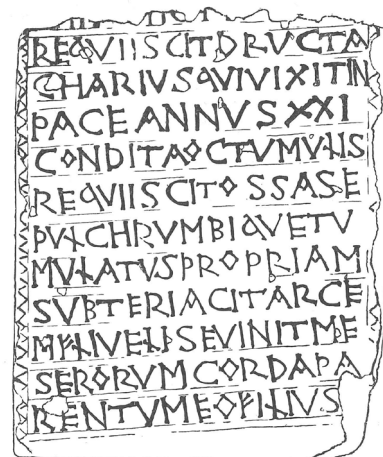 REQVIISCITDRVCTA
CHARIVSQVIVIXITIN
PACEANNVSXXI
CONDITAOCTVMVLIS
REQVIISCITOSSASE
PVLCHRVMBIQVETV
MVLATVSPROPRIAM
SVBTERIACITARCE
SEVINITME
SERORVMCORDAPA
RENTVMEOFILIVS